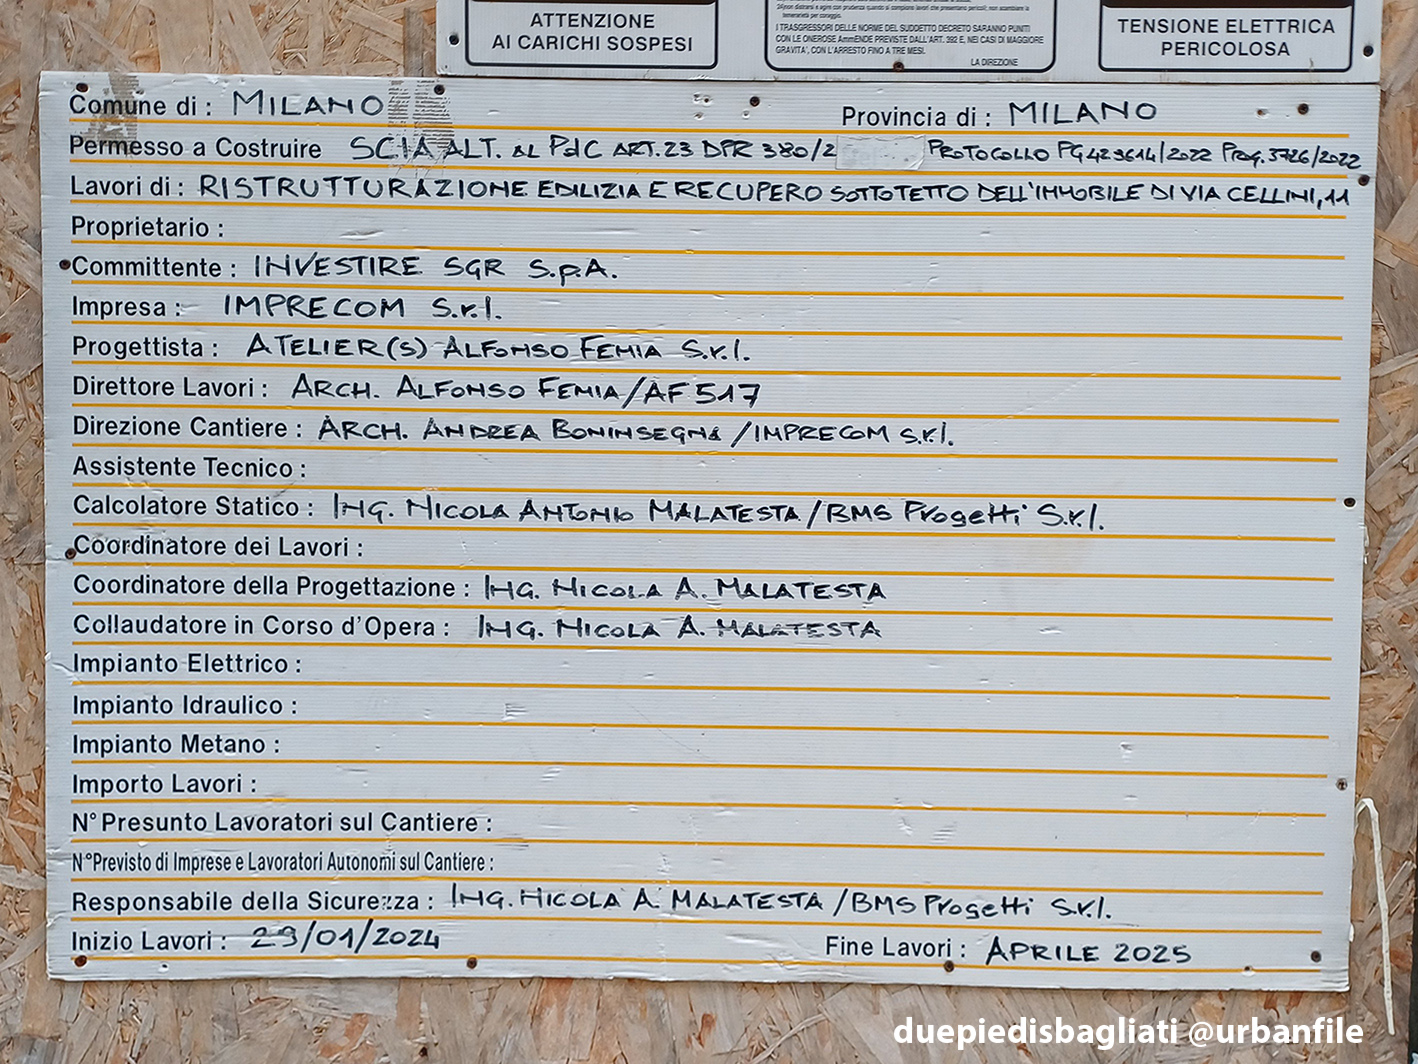 ATTENZIONE
AI CARICHI SOSPESI
I TRASGRESSORI DELLE NORME DEL SUDDETTO DECRETO SARANNO PUNITI
CON LE ONEROSE AmmENDE PREVISTE DALL'ART. 392 E, NEI CASI DI MAGGIORE
GRAVITA', CON L'ARRESTO FINO A TRE MESI.
LA DIREZIONE
TENSIONE ELETTRICA
PERICOLOSA
Comune di : MILANO Provincia di : MILANO
Permesso a Costruire SCIA ALT. AL PdC ART.23 DPR 380/2 PROTOCOLLO PG 429614/2022 Prog. 3726/2022
Lavori di : RISTRUTTURAZIONE EDILIZIA E RECUPERO SOTTOTETTO DELL'IMMOBILE DI VIA CELLINI, 11
Proprietario :
Committente : INVESTIRE SGR S.p.A.
Impresa : IMPRECOM S.r.l.
Progettista : ATELIER(S) ALFONSO FEMIA S.r.l.
Direttore Lavori : ARCH. ALFONSO FEMIA/AF517
Direzione Cantiere : ARCH. ANDREA BONINSEGNA /IMPRECOM S.r.l.
Assistente Tecnico :
Calcolatore Statico : ING. NICOLA ANTONIO MALATESTA/BMS Progetti S.r.l.
Coordinatore dei Lavori :
Coordinatore della Progettazione : ING. NICOLA A. MALATESTA
Collaudatore in Corso d'Opera : ING. NICOLA A. MALATESTA
Impianto Elettrico :
Impianto Idraulico :
Impianto Metano :
Importo Lavori :
N° Presunto Lavoratori sul Cantiere :
N°Previsto di Imprese e Lavoratori Autonomi sul Cantiere :
Responsabile della Sicurezza : ING. NICOLA A. MALATESTA /BMS Progetti S.r.l.
Inizio Lavori : 29/01/2024 Fine Lavori : APRILE 2025
duepiedisbagliati @urbanfile